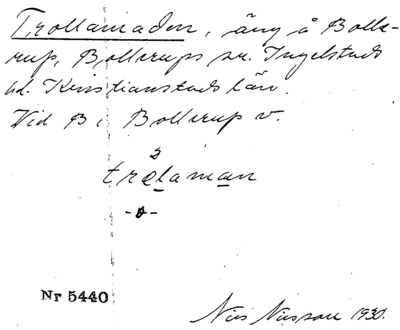 Trollamaden, äng å Bolle-
rup, Bollerups sn. Ingelstads
hd. Kristianstads län.
Vid B i Bollerup v.
trålaman
Nr 5440
Nils Nilsson 1930.